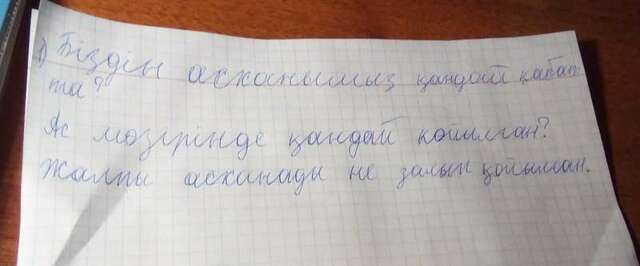 1) Біздін асханымыз қандай қабат
та?
Ас мәзірінде қандай қойылған?
Жалпы асхинады не залын қойылған.